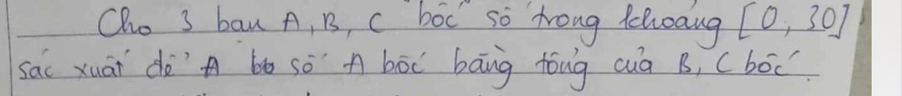 Cho 3 bạn A, B, C bốc số trong khoảng [0, 30]
sác xuất để A số A bốc bằng tổng của B, C bốc.